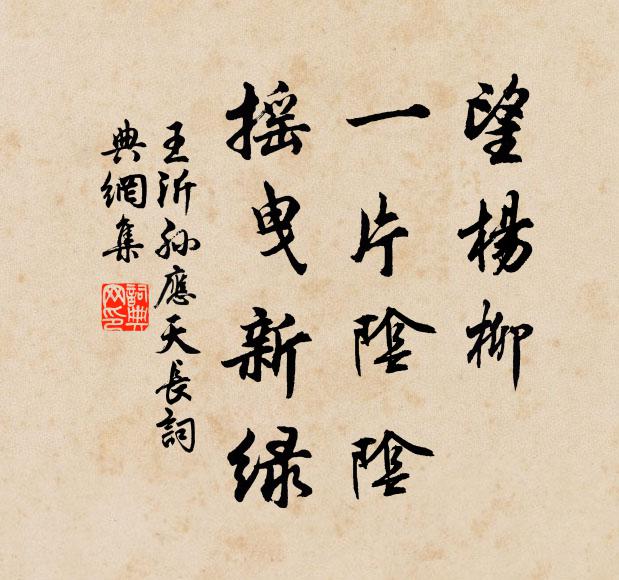 望楊柳
一片陰陰
搖曳新綠
王沂孫應天長詞
典網集
詞典網印